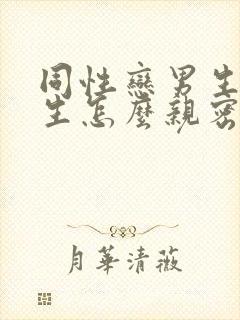 同性戀男生
生怎麼親密
月華清薇